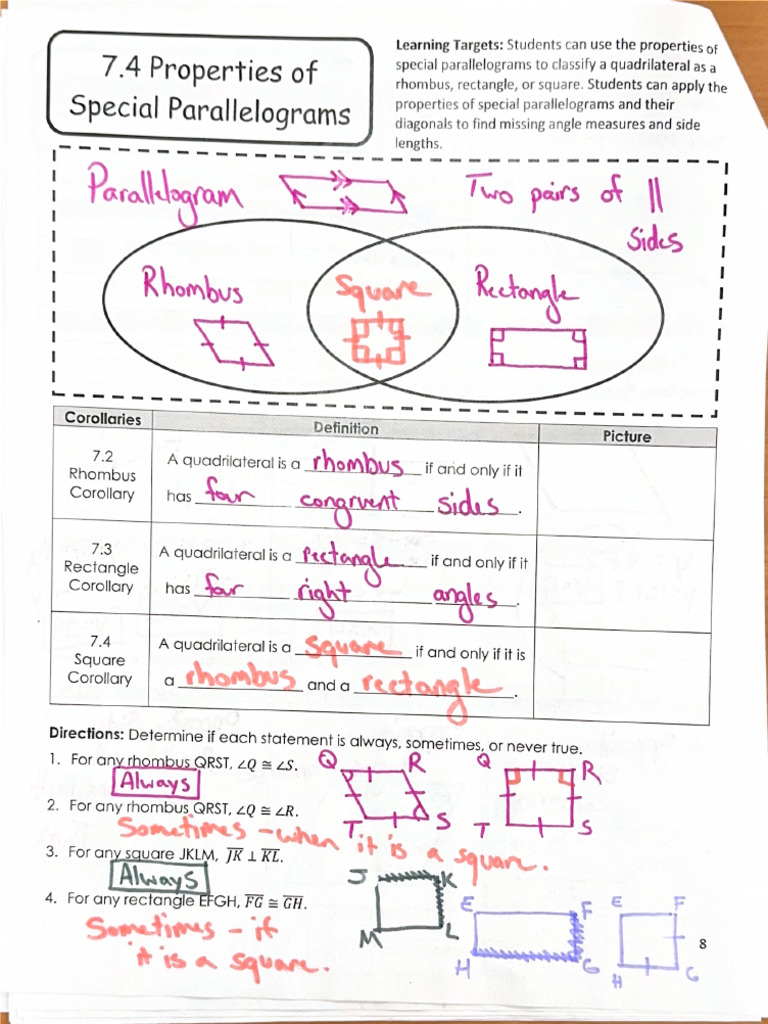 7.4 Properties of
Special Parallelograms
Learning Targets: Students can use the properties of
special parallelograms to classify a quadrilateral as a
rhombus, rectangle, or square. Students can apply the
properties of special parallelograms and their
diagonals to find missing angle measures and side
lengths.
Parallelogram Two pairs of ||
sides
Rhombus Square Rectangle
Corollaries Definition Picture
7.2
Rhombus
Corollary
A quadrilateral is a rhombus if and only if it
has four congruent sides.
7.3
Rectangle
Corollary
A quadrilateral is a rectangle if and only if it
has four right angles.
7.4
Square
Corollary
A quadrilateral is a square if and only if it is
a rhombus and a rectangle.
Directions: Determine if each statement is always, sometimes, or never true.
1. For any rhombus QRST, ∠Q ≅ ∠S.
Always
Q R
T S
Q R
T S
2. For any rhombus QRST, ∠Q ≅ ∠R.
Sometimes - when it is a square.
3. For any square JKLM, JK ⊥ KL.
Always
J K
M L
4. For any rectangle EFGH, FG ≅ GH.
Sometimes - if
it is a square.
E F
H G
E F
H G
8